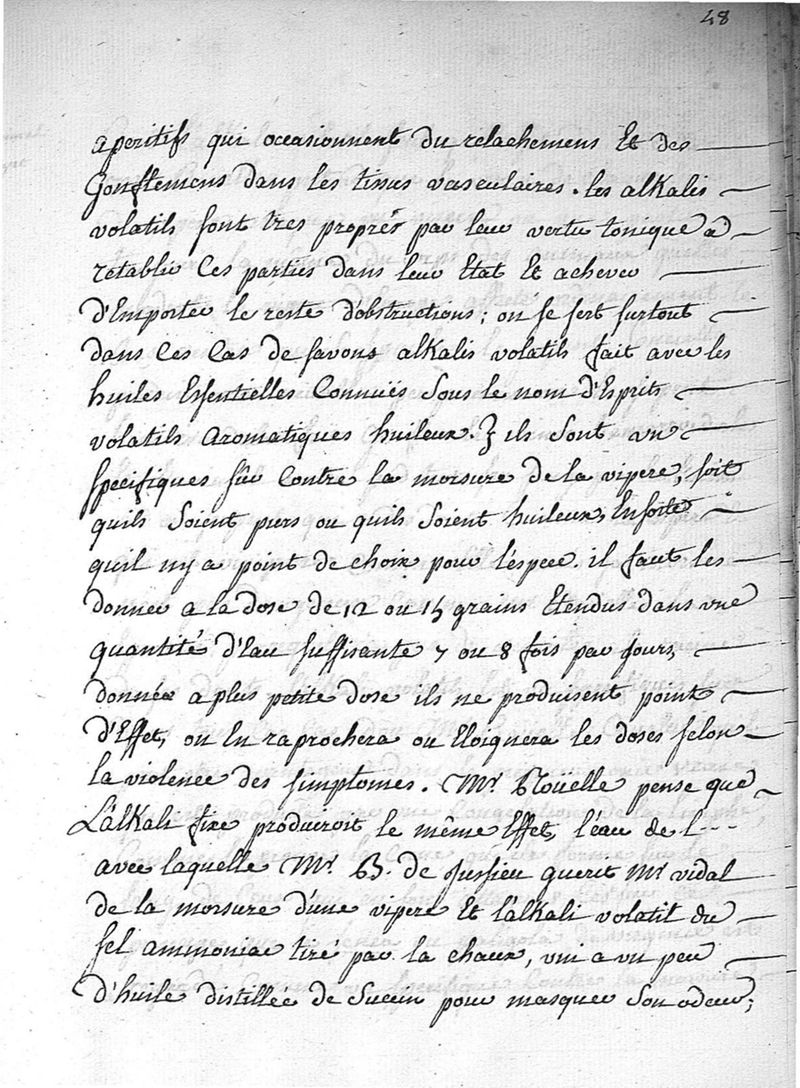 48
aperitifs qui occasionnent du relachemens Et des
Gonflemens dans les tissus vasculaires. les alKalis
volatils sont tres proprés par leur vertu tonique a
retablir Ces parties dans leur Etat Et achever
d'Emporter le reste d'obstructions; on se sert surtout
dans Ces Cas de savons alKalis volatils fait avec les
huiles Essentielles Connuës Sous le nom d'Esprits
volatils aromatiques huileux. ils sont un
specifiques sûr Contre la morsure de la vipere, soit
quils Soient purs ou quils Soient huileux, Ensorte
quil ny a point de choix pour l'éspece. il faut les
donner a la dose de 12 ou 15 grains Etendus dans une
quantité d'Eau suffisante 7 ou 8 fois par Jours,
donnée a plus petite dose ils ne produisent point
d'Effet, on En raprochera ou Eloignera les doses selon
la violence des simptomes. Mr. Roüelle pense que
L'alKali fixe produiroit le même Effet, l'éau de l---
avec laquelle Mr. B. de Jussieu guerit Mr vidal
de la morsure d'une vipere Et l'alkali volatil du
sel ammoniac tiré par la chaux, uni a un peu
d'huile distillée de Succin pour masquer Son odeur;